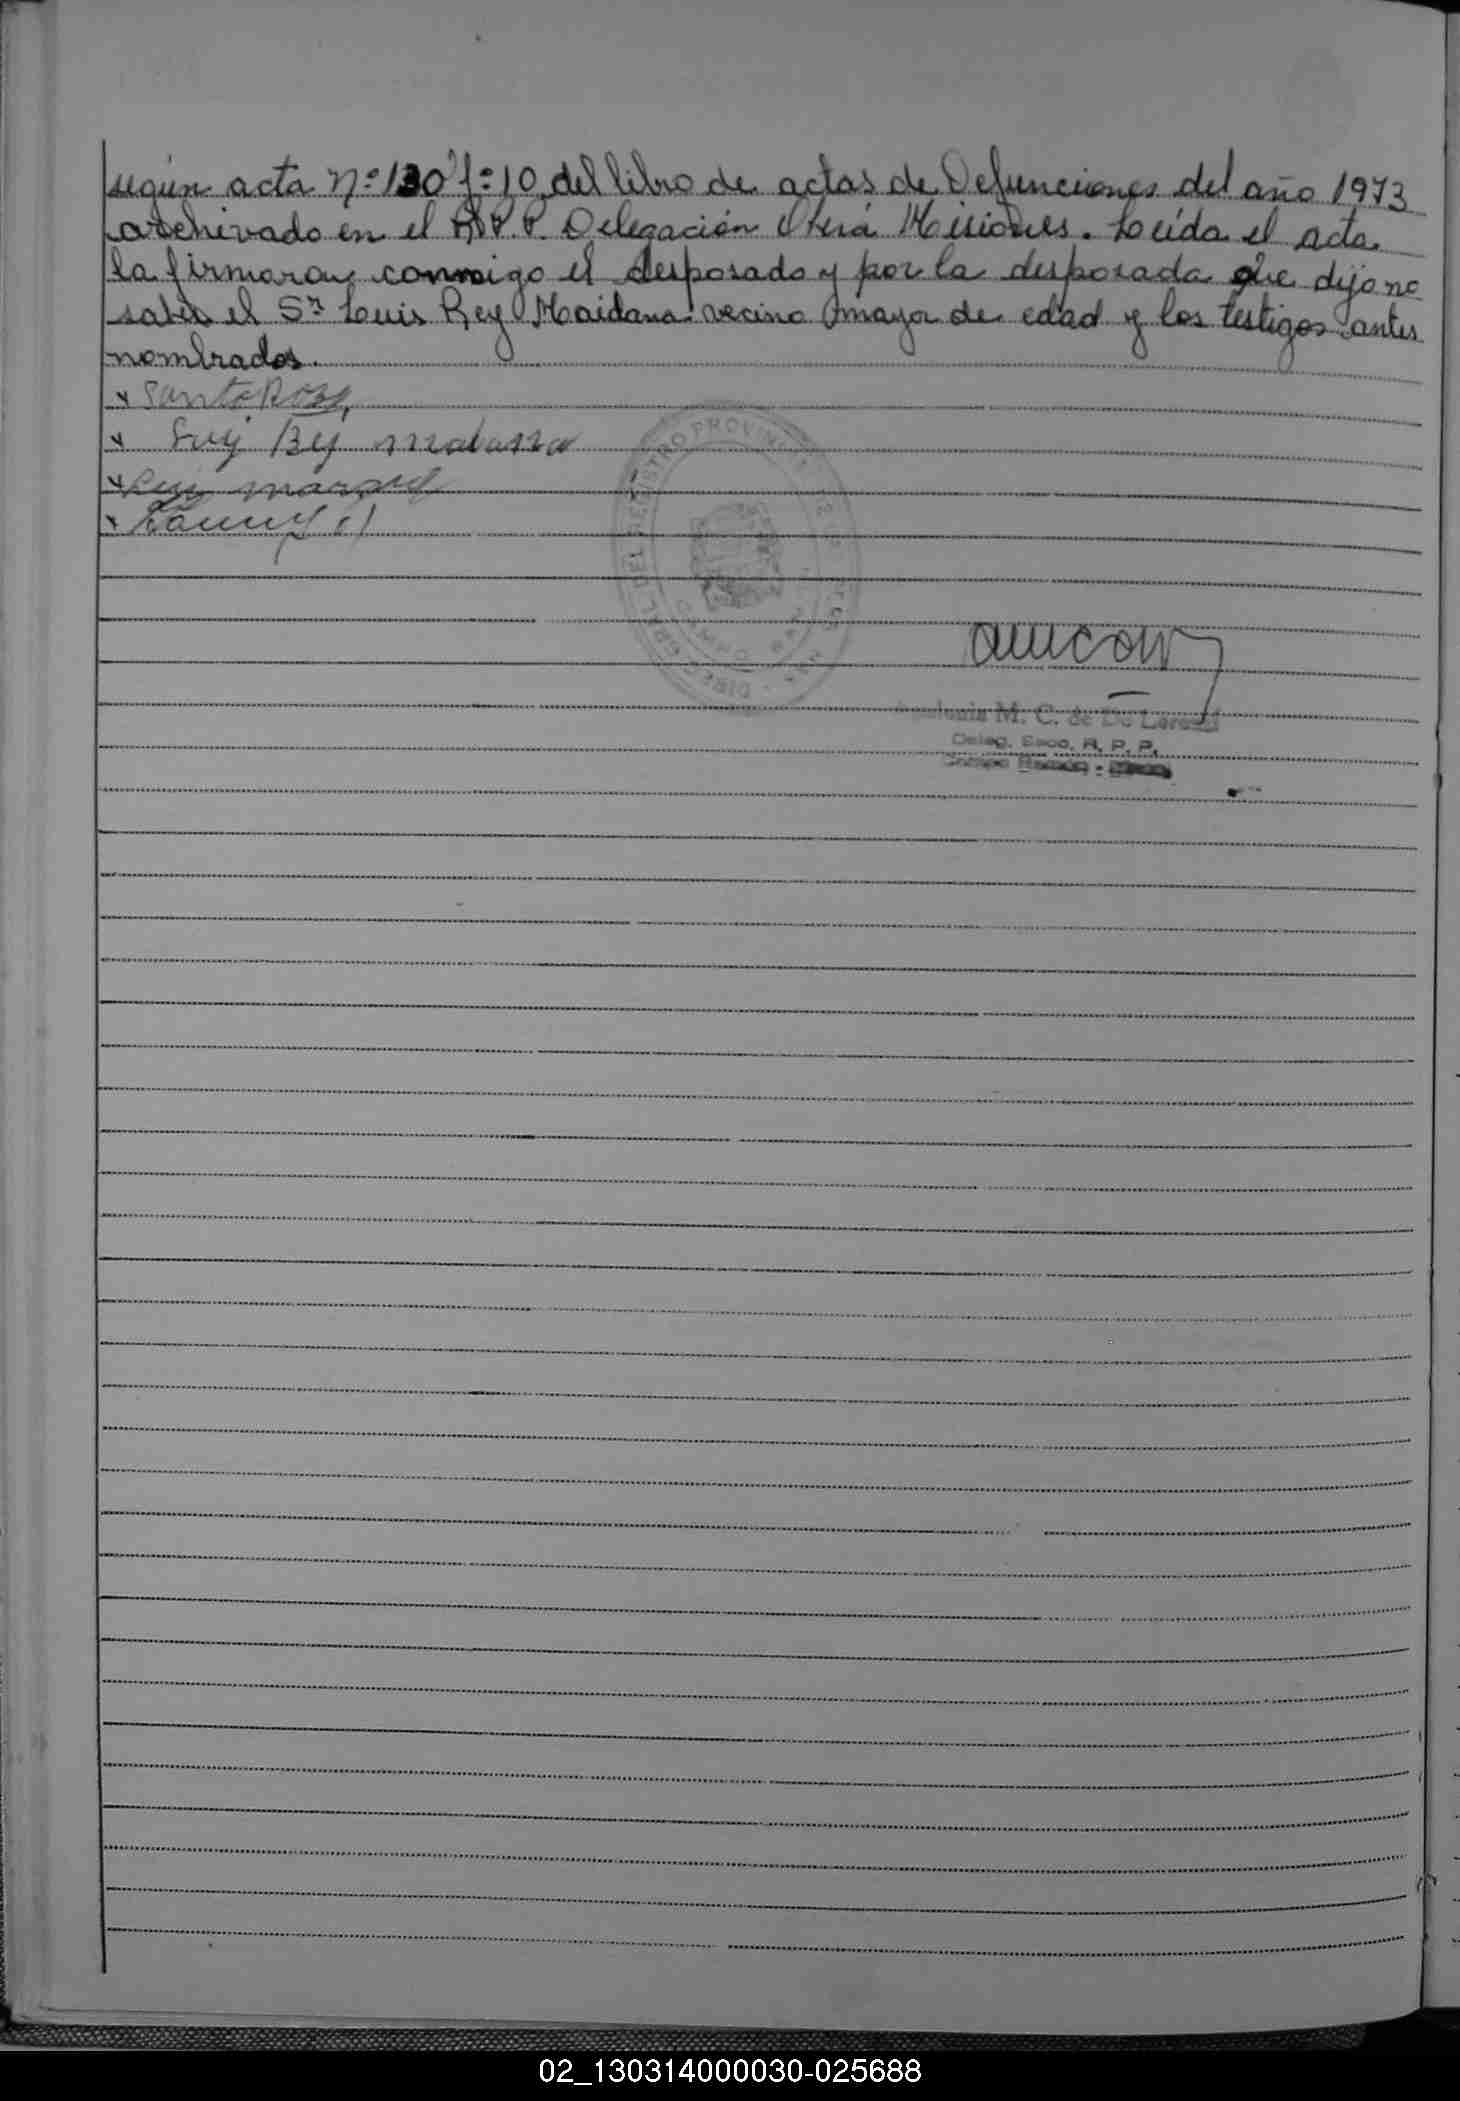 según acta nº 130 fº 10 del libro de actas de Defunciones del año 1973
archivado en el R.P.P. Delegación Oberá Misiones. Leída el acta
la firmaron conmigo el desposado y por la desposada que dijo no
saber el Sr Luis Rey Maidana vecino mayor de edad y los testigos antes
nombrados.
Santo Rosa
REGISTRO PROVINCIAL DE LAS PERSONAS
DIREC. GRAL. DEL
M. C. de De Lorenzi
Deleg. Enco. R. P. P.
Campo Ramón - Misiones
02_130314000030-025688